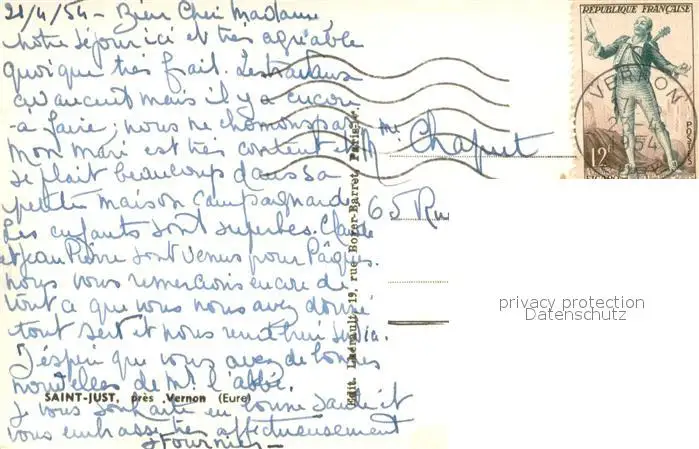 21/4/54 - Bien Chère Madame,
notre séjour ici est très agréable
quoique très frait. Les travaux
avancent mais il y a encore
a faire; nous ne chomons pas
Mon mari est très content et
se plait beaucoup dans sa
petite maison campagnarde
Les enfants sont superbes. Claude
et Jean Pierre sont venus pour Pâques.
nous vous remercions encore de
tout ce que vous nous avez donné
tout sert et nous rend bien service.
J'espère que vous avez de bonnes
nouvelles de Mr. l'abbé.
SAINT-JUST, près Vernon (Eure)
je vous souhaite une bonne santé et
vous embrasse très affectueusement
Fournier
Edit. Lhérault, 19, rue Borer-Barret, Paris
Mme Chaput
65 Ru
RÉPUBLIQUE FRANÇAISE
12f
VERNON
1954
privacy protection
Datenschutz